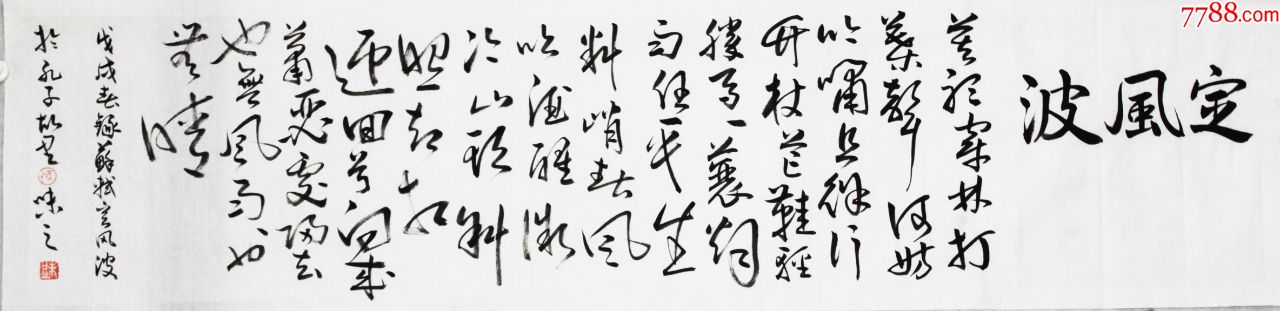 7788.com
定風波
莫聽穿林打
葉聲何妨
吟嘯且徐行
竹杖芒鞋輕
勝馬一蓑烟
雨任平生
料峭春風
吹酒醒微
冷山頭斜
照却相
迎回首向來
蕭瑟處歸去
也無風雨也
無晴
戊戌春錄蘇軾定風波
於孔子故里味之